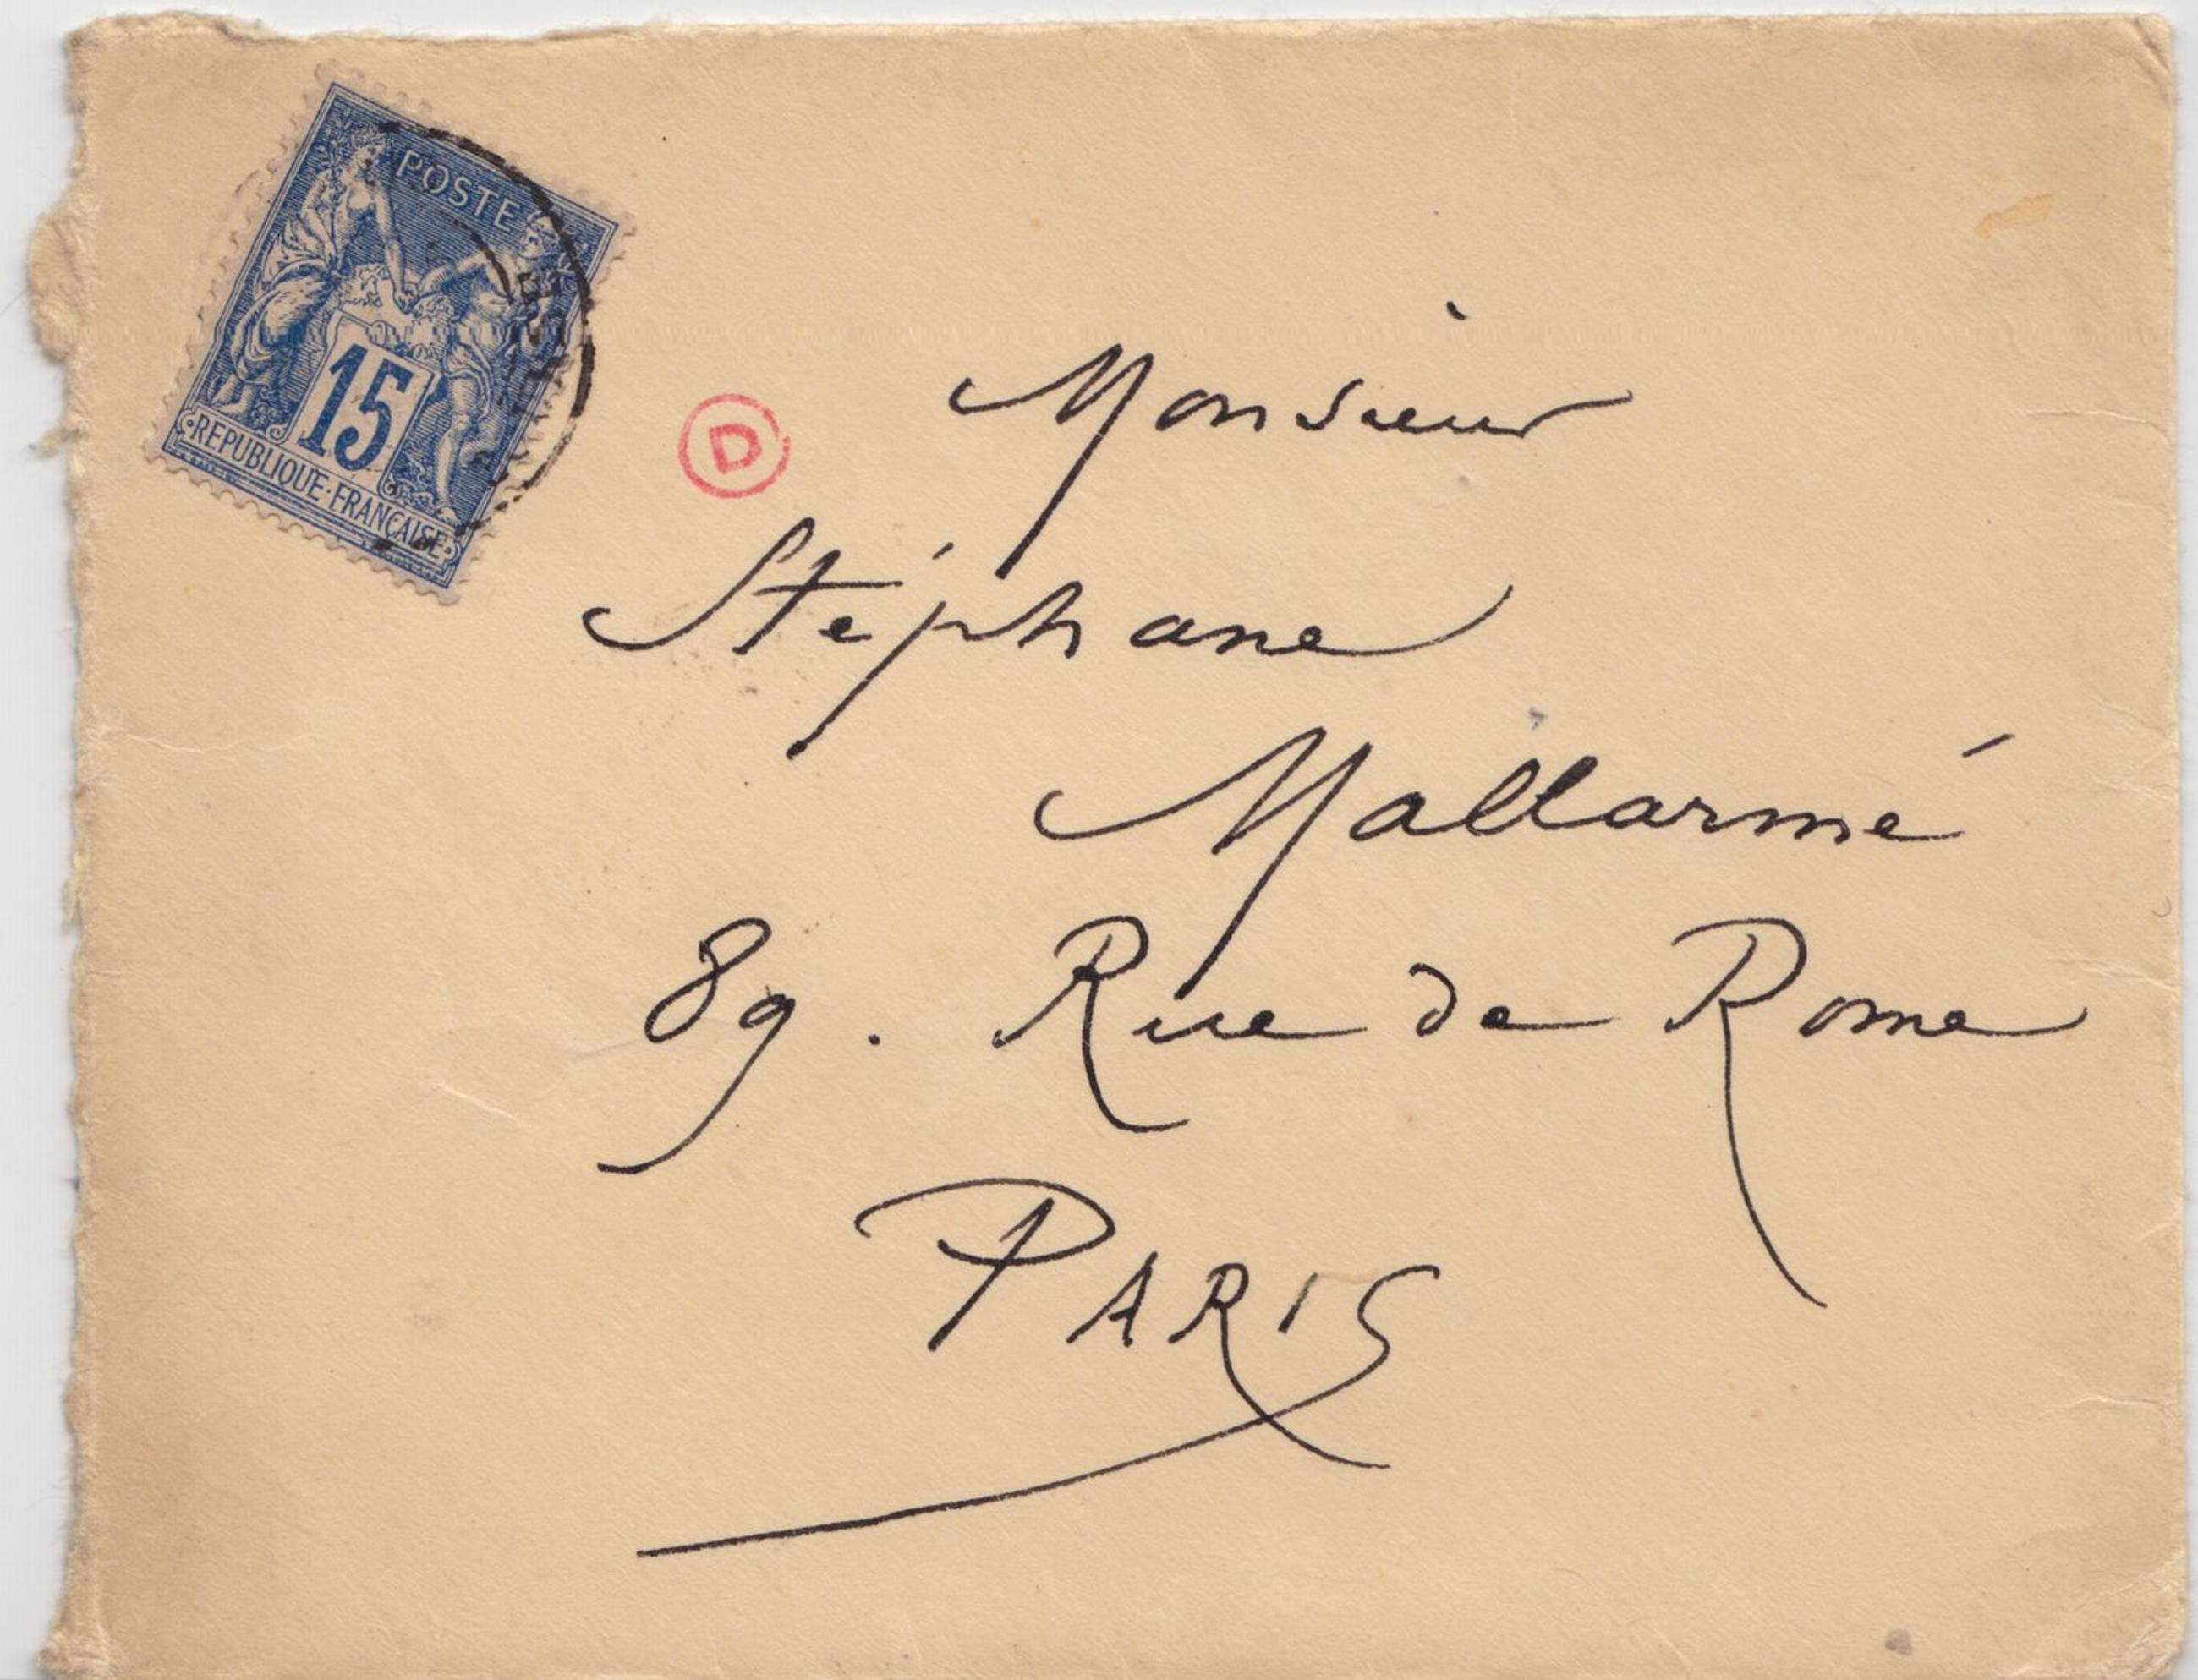 POSTE
15
REPUBLIQUE·FRANÇAISE
D
Monsieur
Stéphane
Mallarmé
89. Rue de Rome
PARIS